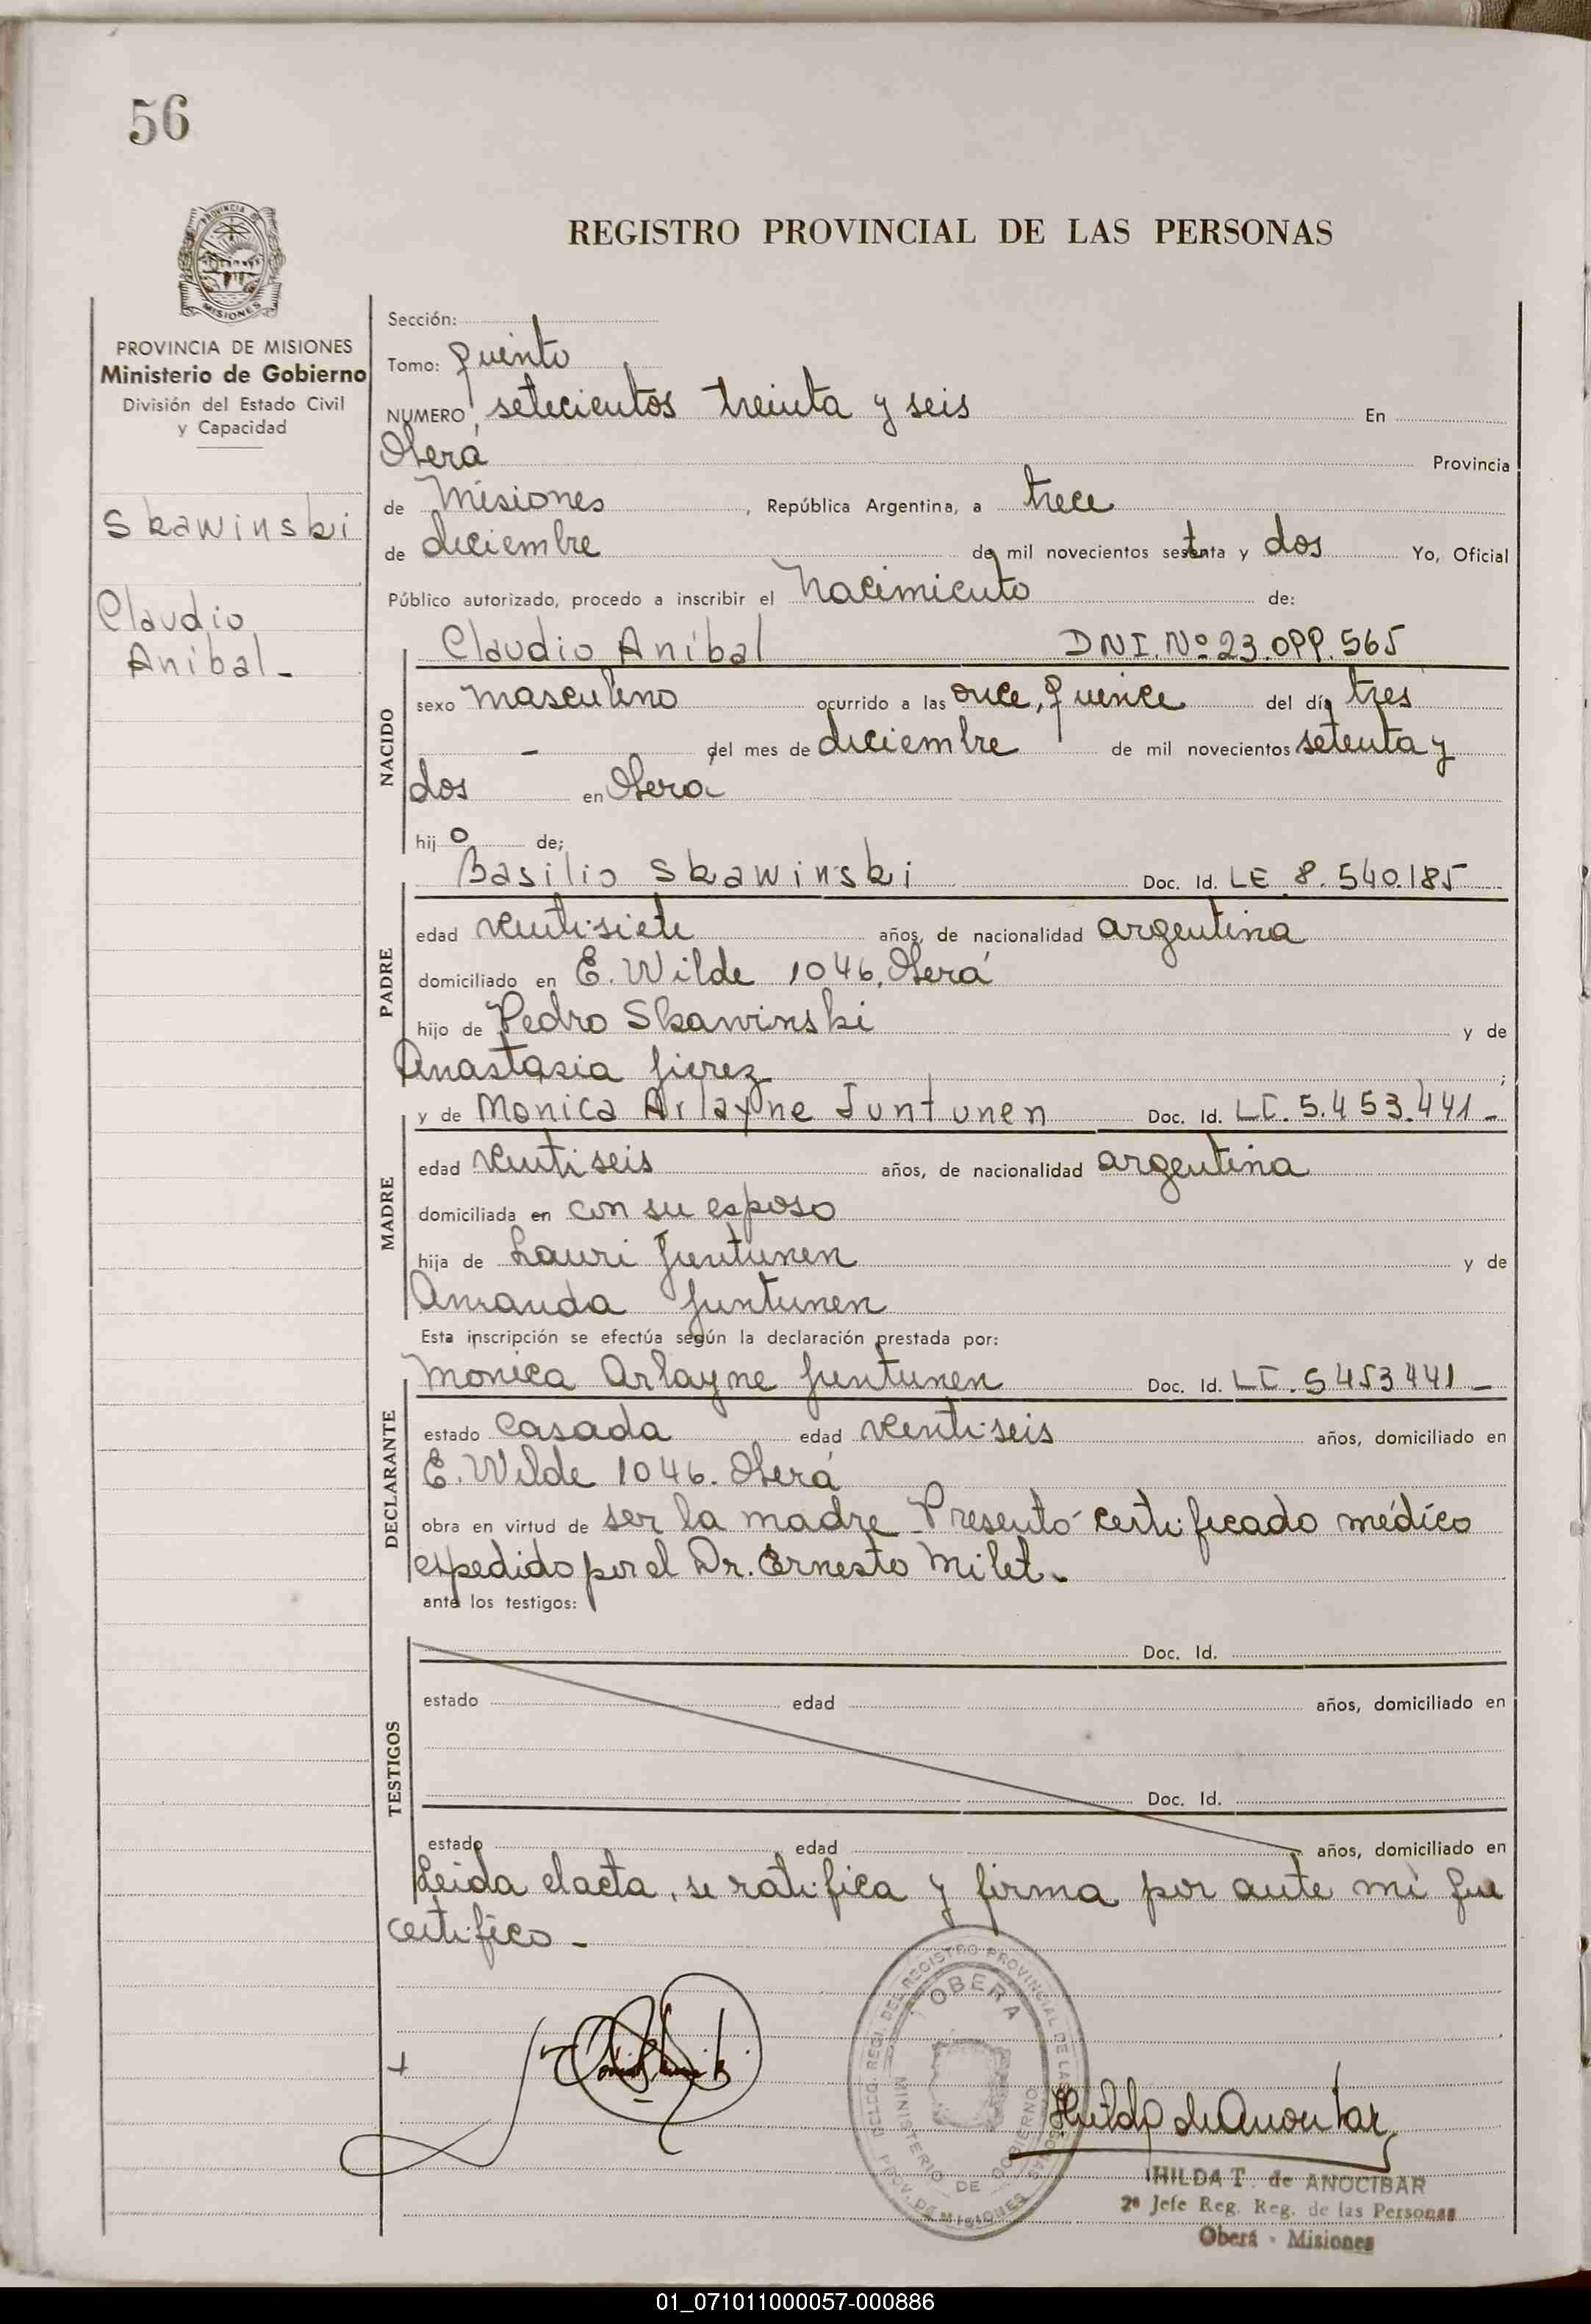 56
REGISTRO PROVINCIAL DE LAS PERSONAS
PROVINCIA DE MISIONES
Ministerio de Gobierno
División del Estado Civil
y Capacidad
Skawinski
Claudio
Anibal -
Sección:
Tomo: quinto
NUMERO setecientos treinta y seis En
Oberá Provincia
de Misiones, República Argentina, a trece
de diciembre de mil novecientos setenta y dos Yo, Oficial
Público autorizado, procedo a inscribir el Nacimiento de:
NACIDO
Claudio Aníbal DNI. Nº 23.099.565
sexo masculino ocurrido a las once, quince del día tres
- del mes de diciembre de mil novecientos setenta y
dos en Oberá
hijo de;
PADRE
Basilio Skawinski Doc. Id. LE 8.540.185
edad ventisiete años, de nacionalidad argentina
domiciliado en E. Wilde 1046, Oberá
hijo de Pedro Skawinski y de
Anastasia ;
MADRE
y de Monica Arlayne Juntunen Doc. Id. LC. 5.453.441 -
edad ventiseis años, de nacionalidad argentina
domiciliada en con su esposo
hija de Lauri Juntunen y de
Amanda Juntunen
Esta inscripción se efectúa según la declaración prestada por:
DECLARANTE
Monica Arlayne Juntunen Doc. Id. LC. 5453441 -
estado casada edad ventiseis años, domiciliado en
E. Wilde 1046. Oberá
obra en virtud de ser la madre - Presentó certificado médico
expedido por el Dr. Ernesto Milet.
ante los testigos:
TESTIGOS
Doc. Id.
estado edad años, domiciliado en
Doc. Id.
estado edad años, domiciliado en
Leida el acta, se ratifica y firma por ante mi que
certifico -
OBERA
MINISTERIO DE GOBIERNO
PROV. DE MISIONES
Hilda de Anocibar
HILDA T. de ANOCIBAR
2º Jefe Reg. Reg. de las Personas
Oberá - Misiones
01_071011000057-000886